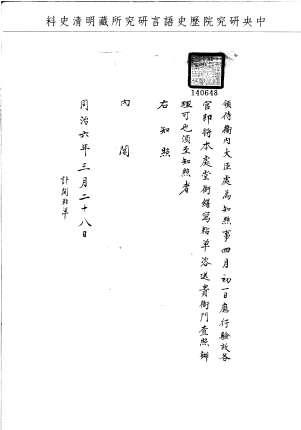 中央研究院歷史語言研究所藏明清史料
140648
領侍衛內大臣處為知照事四月初一日應行驗放各
官即將本處堂銜繕寫粘單咨送貴衙門查照辦
理可也須至知照者
右知照
內閣
同治六年三月二十八日
計開粘單